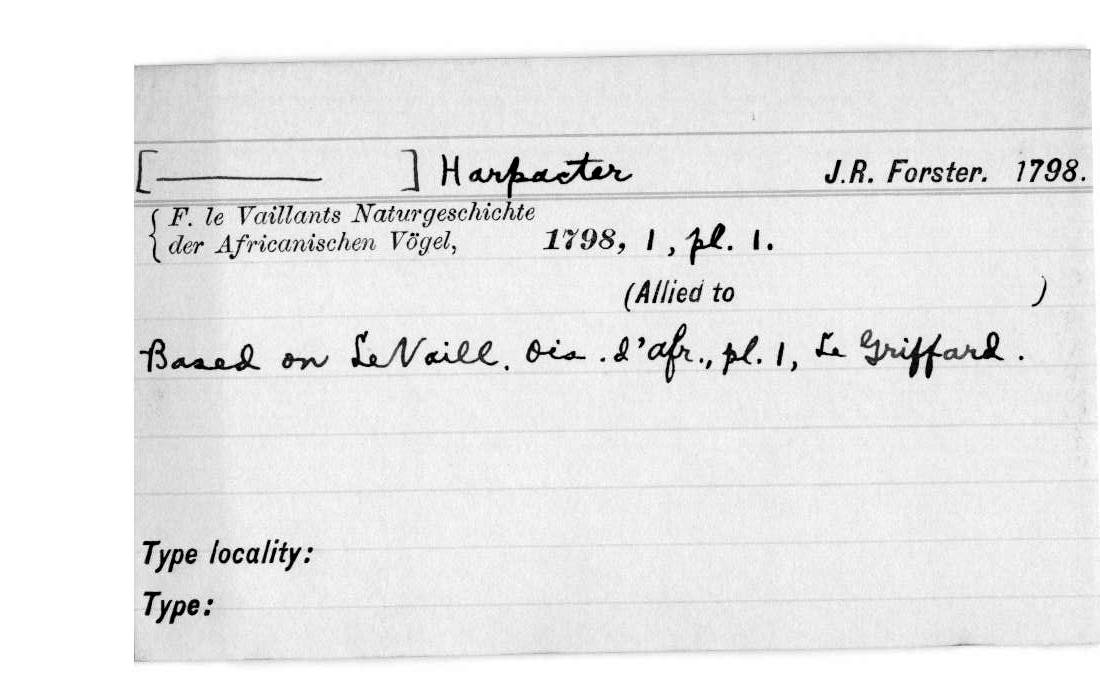 [———] Harpacter J.R. Forster. 1798.
F. le Vaillants Naturgeschichte
der Africanischen Vögel, 1798, 1, pl. 1.
(Allied to )
Based on LeVaill. Ois. d'afr., pl. 1, Le Griffard.
Type locality:
Type: